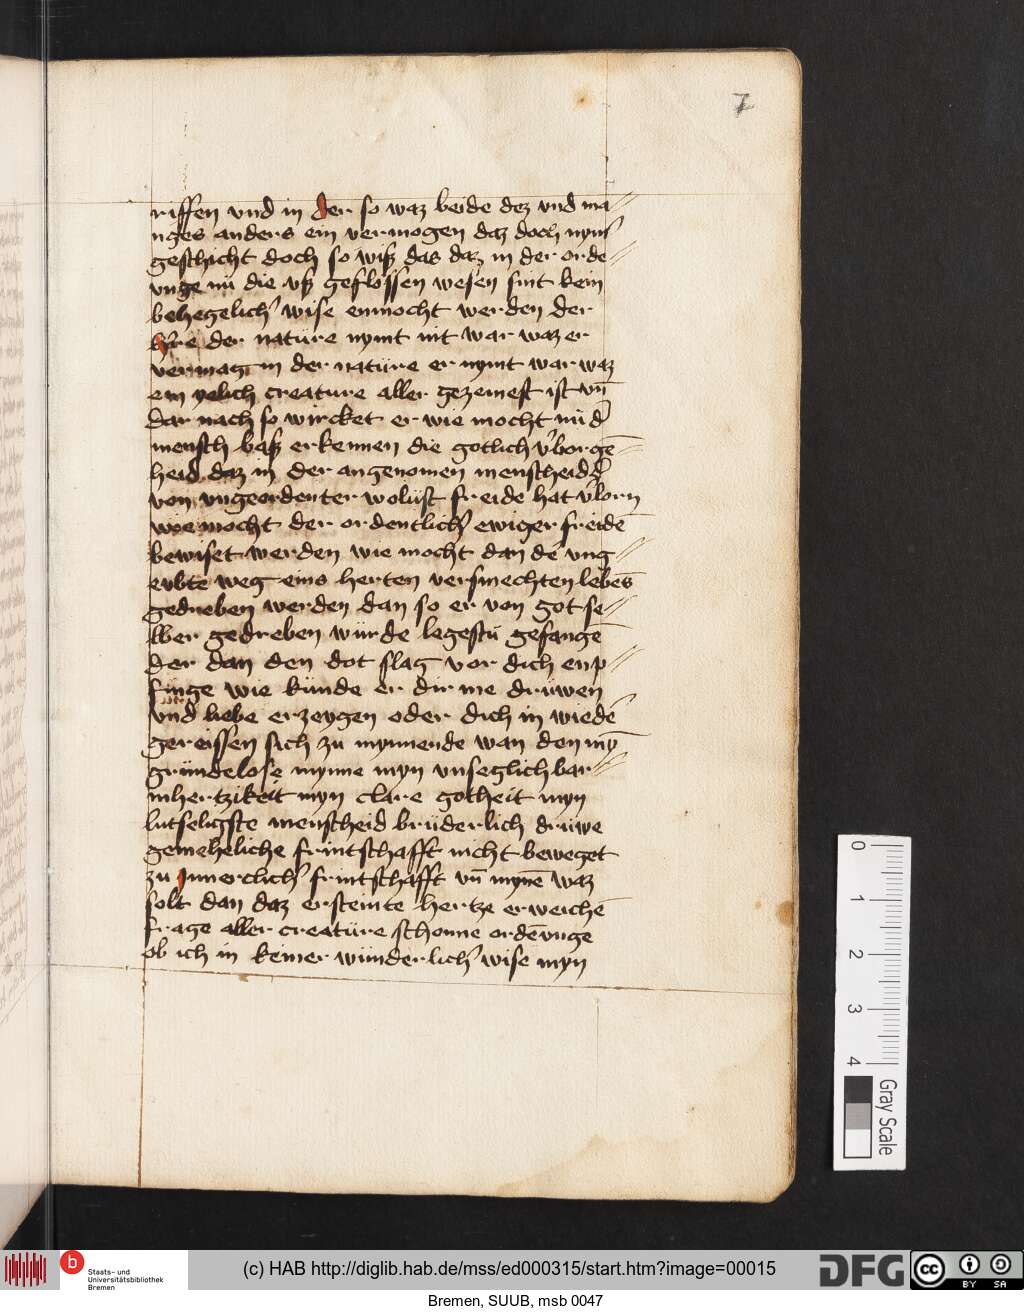 7
riffen vnd in der so waz beide dez vnd ma
nges anders ein vermogen daz doch nym̄
geschicht doch so wiß das daz in der orde
vnge nü die vß geflossen wesen sint kein
behegelich' wise enmocht werden der
h're der natüre nymt nit war waz er
vermag in der natüre er nymt war waz
ein yelich creature aller gezemest ist vn̄
dar nach so wircket er wie mocht nü d'
mensch baß erkennen die gotlich v'borgē
heid daz in der angenomen menscheid d'
von vngeordenter wolüst freide hat v'lorn
wie mocht der ordentlich' ewiger freidē
bewiset werden wie mocht dan dē vng
eübte weg eins herten versmechten lebēs
gedreben werden dan so er von got se
lber gedreben würde legestü gefangē
der dan den dot slag vor dich enp
finge wie künde er dir me drüwen
vnd liebe erzeygen oder dich in wiedē
gereissen sich zu mynnende wan den mȳ
gründelose mynne myn vnseglich bar
mhertzikeit myn clare gotheit myn
lutseligste menscheid brüderlich drüwe
gemeheliche frintschafft nicht beweget
zu Innerclich' frintschafft vn̄ mynē waz
solt dan daz ersteinte hertze erweichē
frage aller creatüre schonne ordēvnge
ob ich in keiner wünderlich' wise myn
0
1
2
3
4
Gray Scale
b
Staats- und
Universitätsbibliothek
Bremen
(c) HAB http://diglib.hab.de/mss/ed000315/start.htm?image=00015
DFG
cc
BY SA
Bremen, SUUB, msb 0047